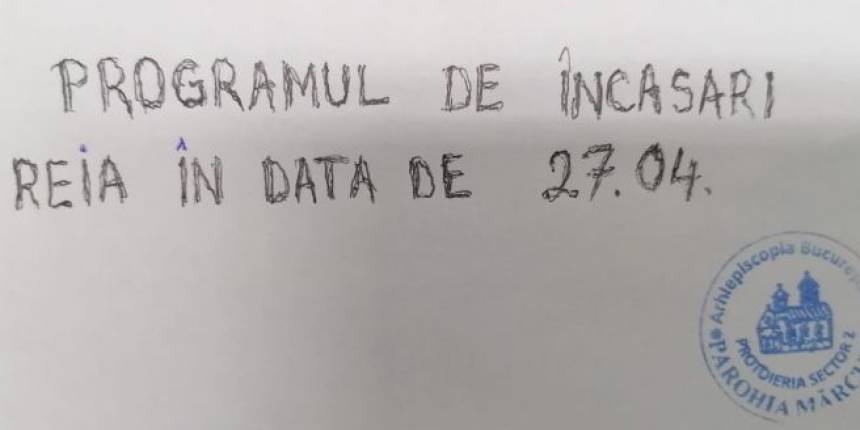 PROGRAMUL DE ÎNCASARI
REIA ÎN DATA DE 27.04.
Arhiepiscopia
PROTOIERIA SECTOR 2
PAROHIA